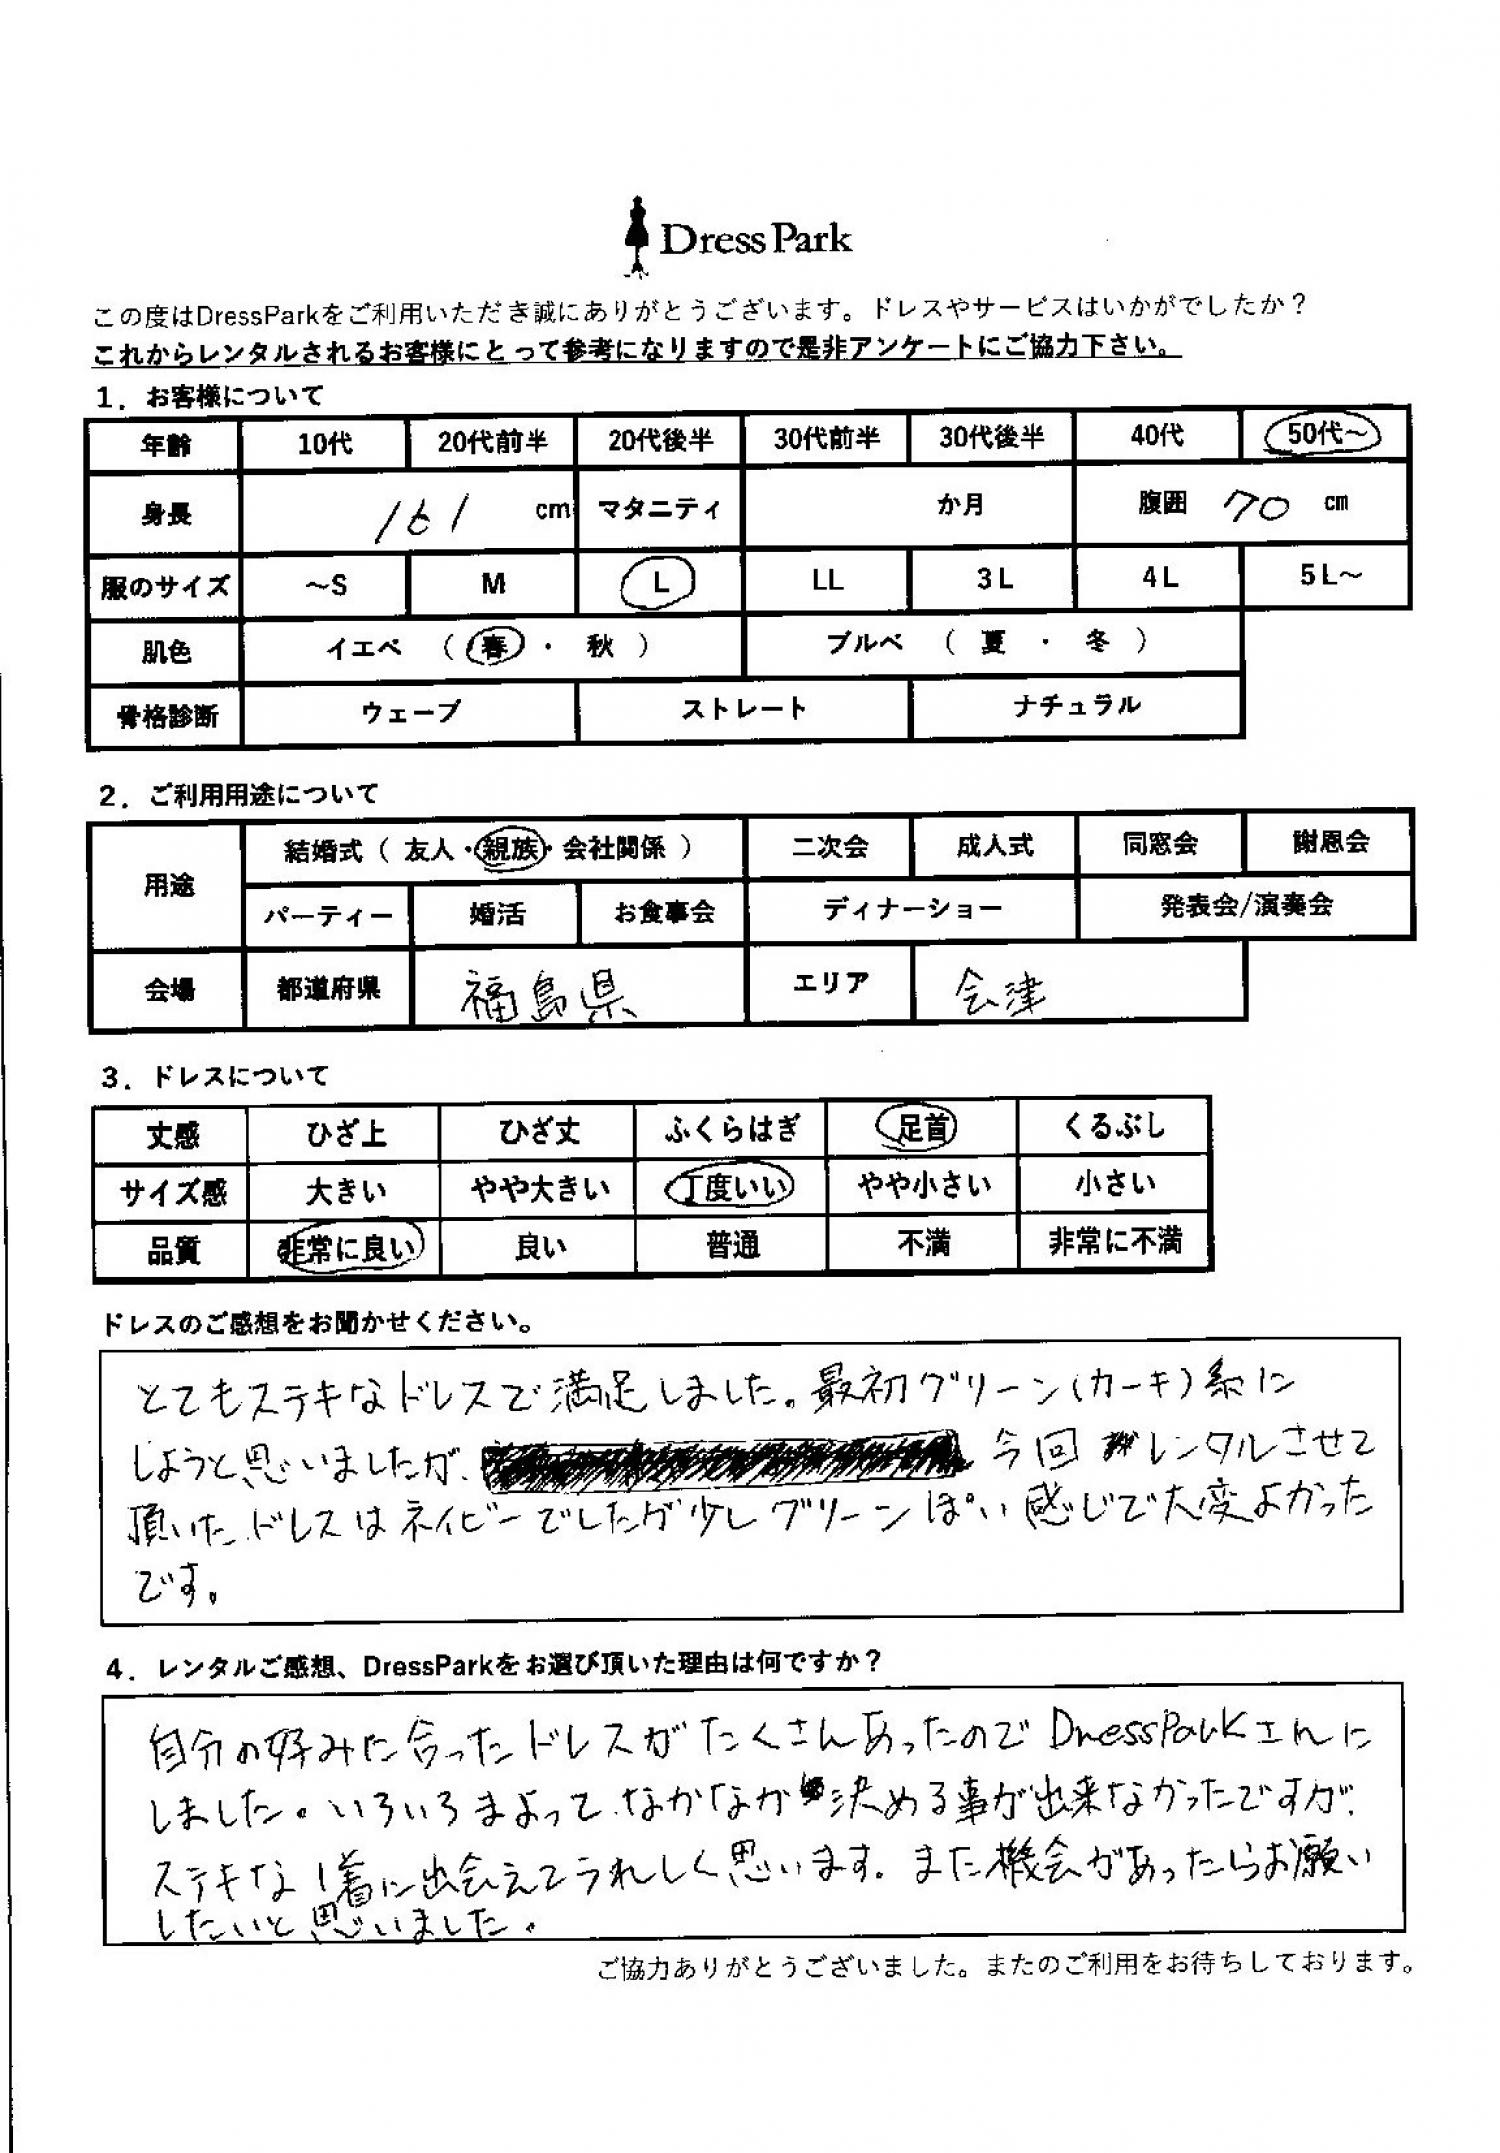 Dress Park
この度はDressParkをご利用いただき誠にありがとうございます。ドレスやサービスはいかがでしたか？
これからレンタルされるお客様にとって参考になりますので是非アンケートにご協力下さい。
1．お客様について
年齢 10代 20代前半 20代後半 30代前半 30代後半 40代 50代～
身長 161 cm マタニティ か月 腹囲 70 cm
服のサイズ ～S M L LL 3L 4L 5L～
肌色 イエベ （ 春 ・ 秋 ） ブルベ （ 夏 ・ 冬 ）
骨格診断 ウェーブ ストレート ナチュラル
2．ご利用用途について
用途 結婚式（ 友人・親族・会社関係 ） 二次会 成人式 同窓会 謝恩会
パーティー 婚活 お食事会 ディナーショー 発表会/演奏会
会場 都道府県 福島県 エリア 会津
3．ドレスについて
丈感 ひざ上 ひざ丈 ふくらはぎ 足首 くるぶし
サイズ感 大きい やや大きい 丁度いい やや小さい 小さい
品質 非常に良い 良い 普通 不満 非常に不満
ドレスのご感想をお聞かせください。
とてもステキなドレスで満足しました。最初グリーン(カーキ)系に
しようと思いましたが、今回レンタルさせて
頂いた、ドレスはネイビーでしたが少しグリーンぽい感じで大変よかった
です。
4．レンタルご感想、DressParkをお選び頂いた理由は何ですか？
自分の好みに合ったドレスがたくさんあったのでDressParkさんに
しました。いろいろまよって、なかなか決める事が出来なかったですが、
ステキな1着に出会えてうれしく思います。また機会があったらお願い
したいと思いました。
ご協力ありがとうございました。またのご利用をお待ちしております。